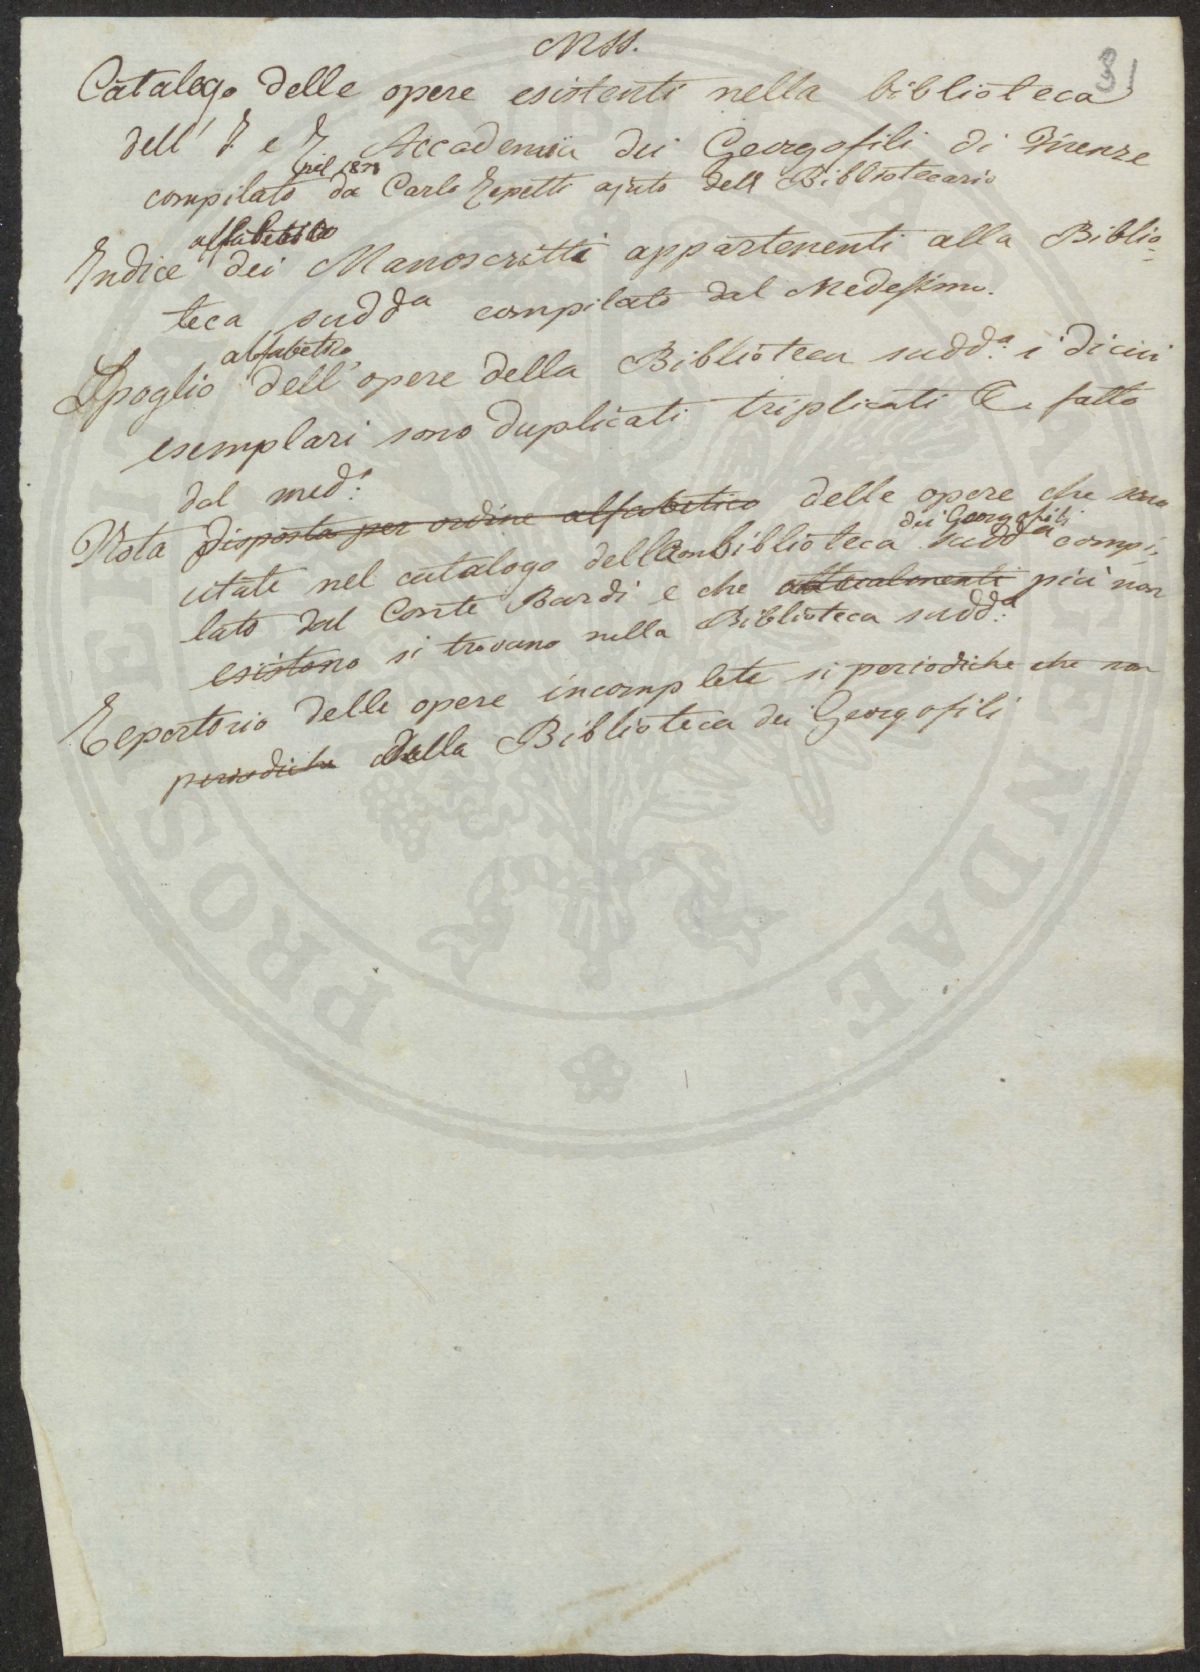 Mss.
31
Catalogo delle opere esistenti nella biblioteca
dell' I e R Accademia dei Georgofili di Firenze
nel 18
compilato da Carlo Repetti ajuto dell Bibliotecario
alfabetico
Indice dei Manoscritti appartenenti alla Biblio-
teca sudda compilato dal Medesimo.
alfabetico
Spoglio dell' opere della Biblioteca sudd.a i dicui
esemplari sono duplicati triplicati &. fatto
dal med.
Nota disposta per ordine alfabetico delle opere che sono
dei Georgofili
citate nel catalogo della Biblioteca sudda compi-
lato dal Conte Bardi e che attualmenti più non
esistono si trovano nella Biblioteca sudd.a
Repertorio delle opere incomplete si periodiche che non
periodiche della Biblioteca dei Georgofili
PROSPERITATI PVBLICAE AVGENDAE